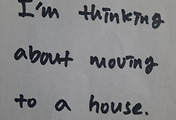 I'm thinking
about moving
to a house.